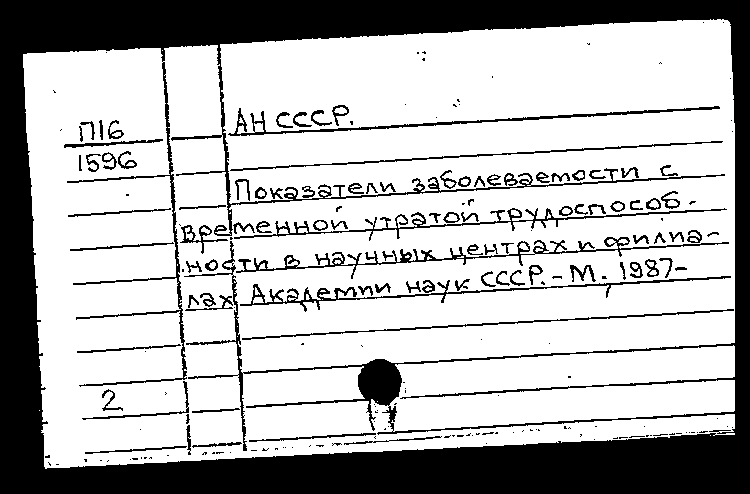 П16
1596
АН СССР.
Показатели заболеваемости с
временной утратой трудоспособ-
ности в научных центрах и филиа-
лах Академии наук СССР. - М., 1987-
2